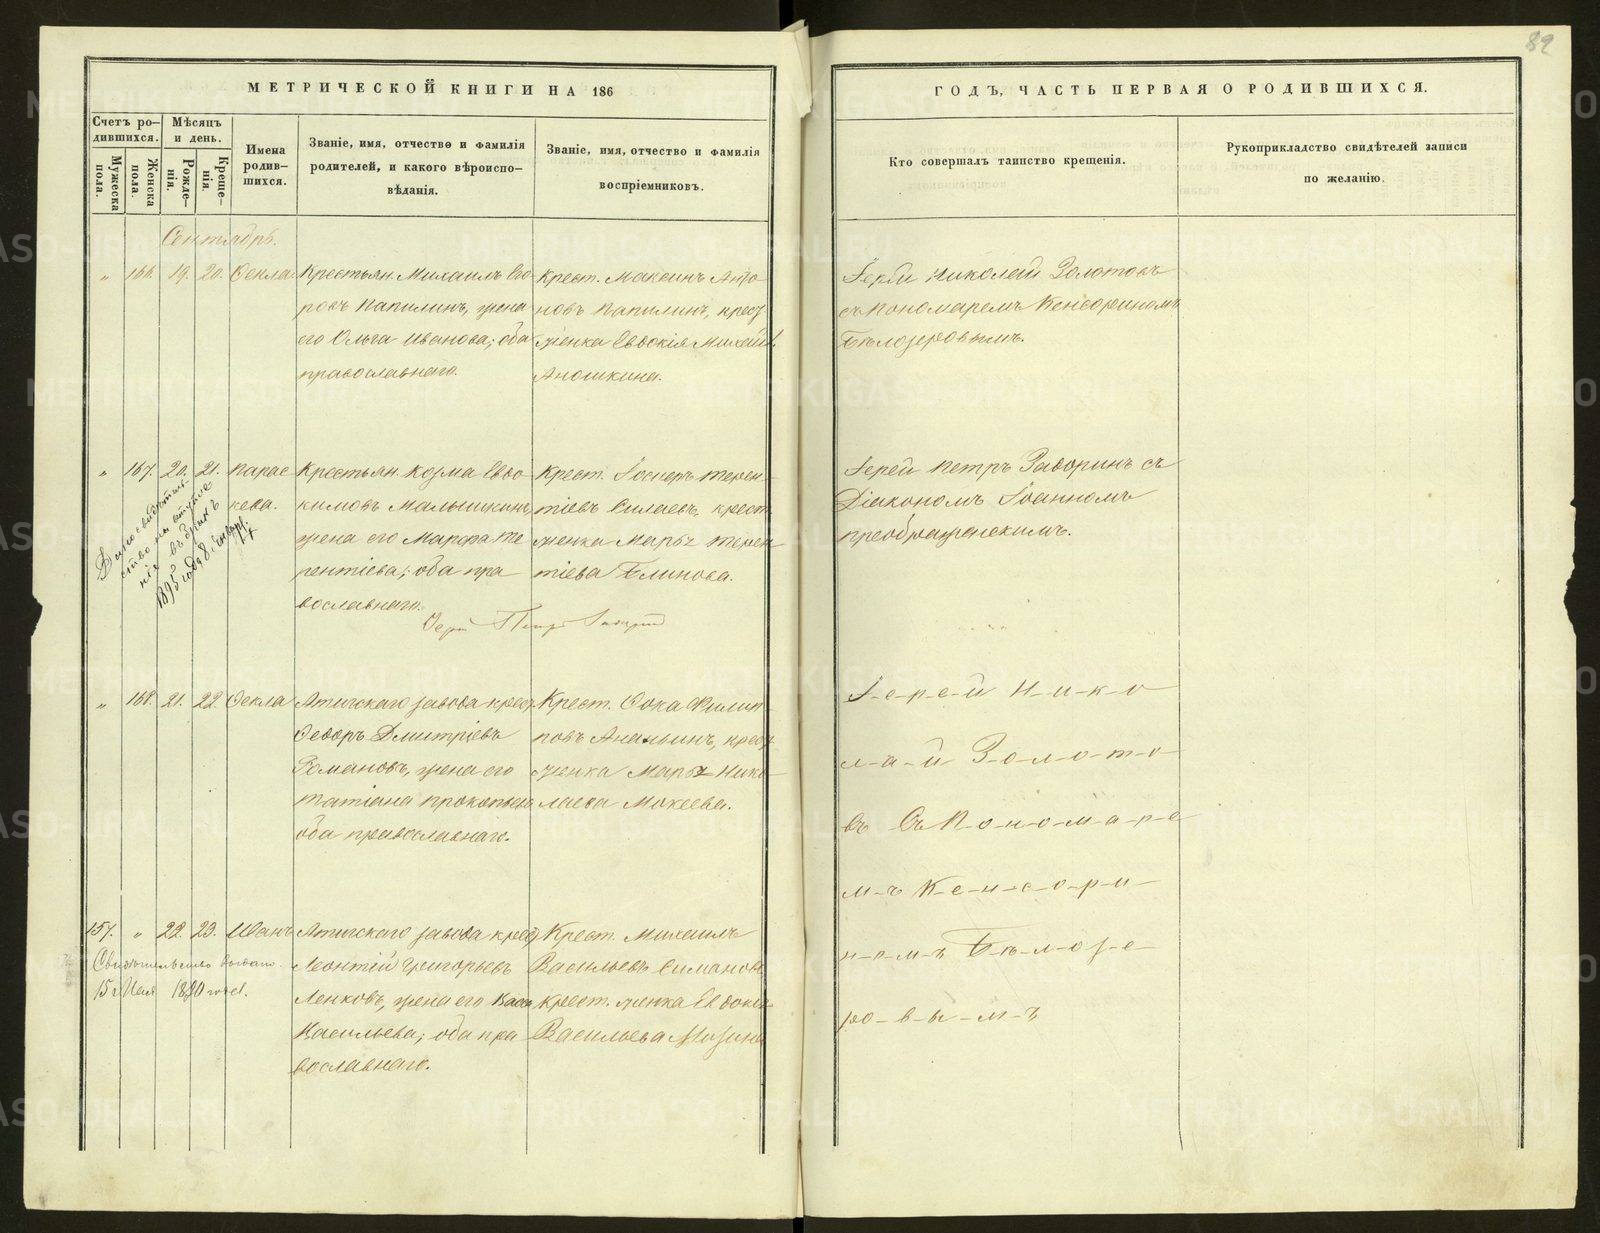 82
МЕТРИЧЕСКОЙ КНИГИ НА 186
ГОДЪ, ЧАСТЬ ПЕРВАЯ О РОДИВШИХСЯ.
Счетъ ро-
дившихся.
Мужеска
пола.
Женска
пола.
Мѣсяцъ
и день.
Рожде-
нія.
Креще-
нія.
Имена
родив-
шихся.
Званіе, имя, отчество и фамилія
родителей, и какого вѣроиспо-
вѣданія.
Званіе, имя, отчество и фамилія
воспріемниковъ.
Кто совершалъ таинство крещенія.
Рукоприкладство свидѣтелей записи
по желанію.
Сентябрь.
„ 166. 19. 20. Ѳекла
Крестьян. Михаилъ Его-
ровъ Папилинъ, жена
его Ольга Иванова; оба
православнаго.
Крест. Максимъ
новъ Папилинъ, крест
женка Евдокія
Аношкина.
Іерей Николай Золотовъ
съ пономаремъ Кенсориномъ
Бѣлозеровымъ.
„ 167. 20. 21. Парас
кева.
Крестьян. Козма Евдо-
кимовъ Малышкинъ,
жена его Марѳа Те
рентіева; оба пра
вославнаго.
Крест. Іосифъ Терен-
тіевъ Силаевъ, крест.
женка Марья Терен
тіева Блинова.
Іерей Петръ Заворинъ съ
Діакономъ Іоанномъ
Преображенскимъ.
въ бракъ
895 года 8 января
Іерей Петръ
„ 168. 21. 22. Ѳекла
Атигскаго завода крест.
Ѳедоръ Дмитріевъ
Романовъ, жена его
Татіана Прокопьева
оба православнаго.
Крест. Ѳока Филип-
повъ Ананьинъ, крест
женка Марья Нико-
лаева Мокеева.
І-е-р-е-й Н-и-к-о
л-а-й З-о-л-о-т-о
въ съ П-о-н-о-м-а-р-е
м-ъ К-е-н-с-о-р-и-
н-о-м-ъ Б-ѣ-л-о-з-е-
ро-в-ы-м-ъ
157. „ 22. 23. Иванъ
Свидѣтельство выдано
15 Іюля 1880 года.
Атигскаго завода крест
Леонтій Григорьевъ
Ленковъ, жена его Васса
Васильева; оба пра
вославнаго.
Крест. Михаилъ
Васильевъ Симановъ
крест. женка Евдокія
Васильева Мозина
METRIKI.GASO-URAL.RU